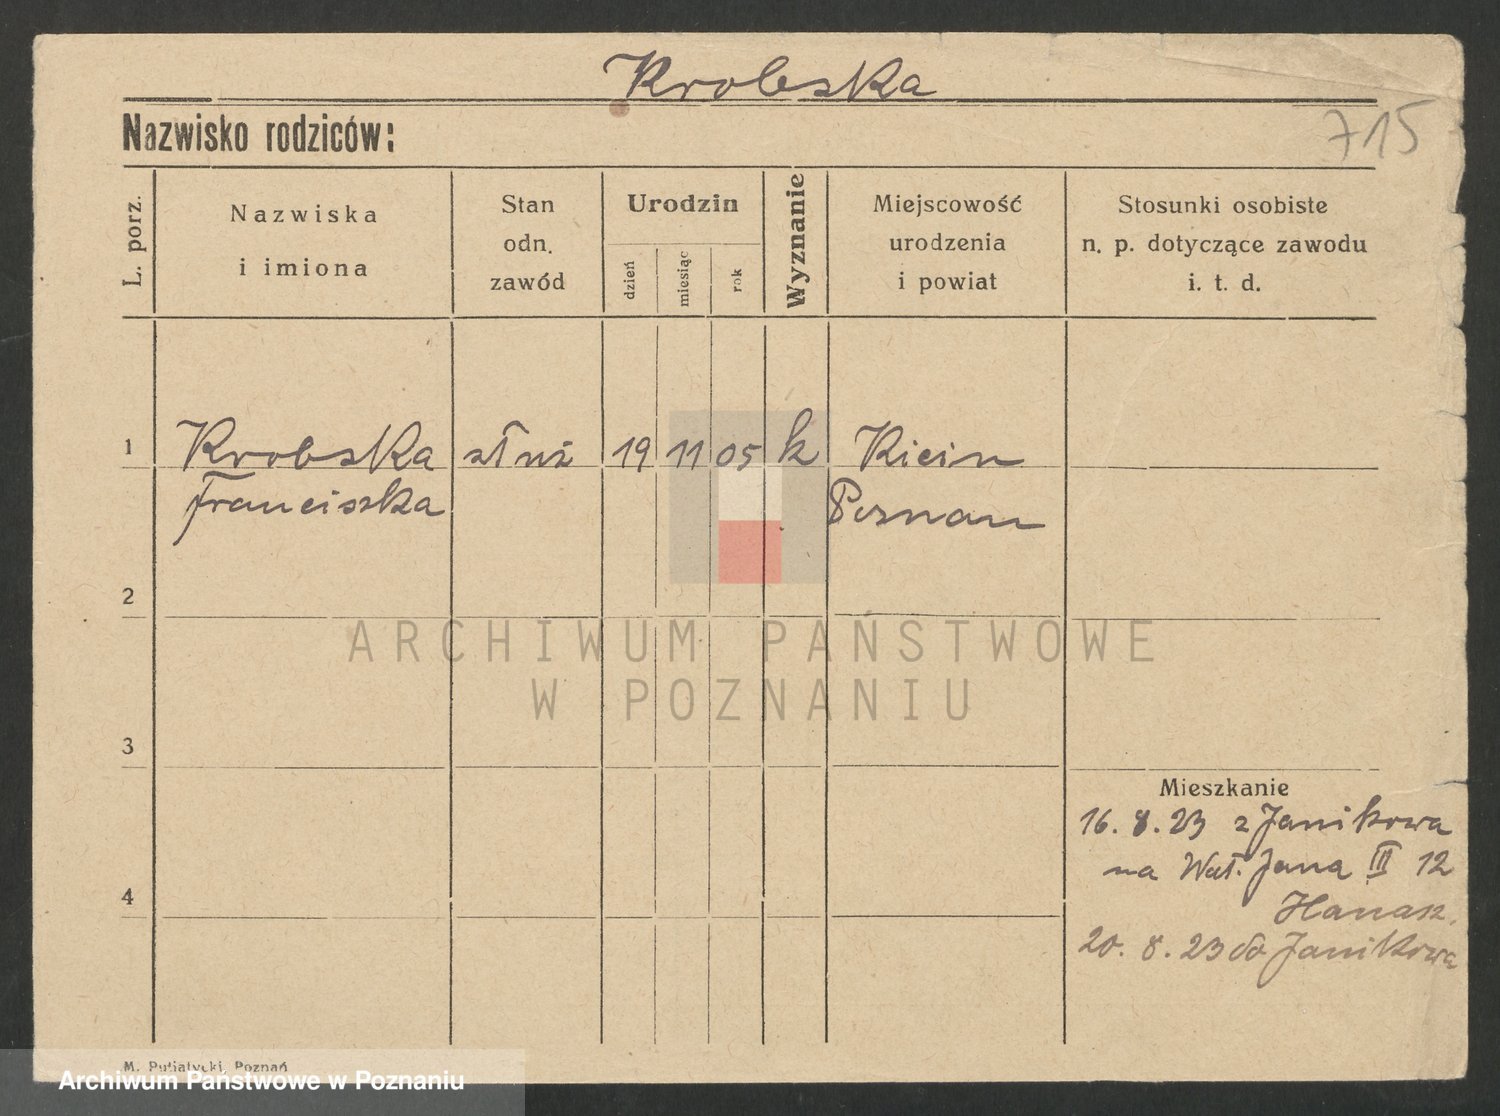 Krobska
Nazwisko rodziców:
715
L. porz.
Nazwiska
i imiona
Stan
odn.
zawód
Urodzin
dzień
miesiąc
rok
Wyznanie
Miejscowość
urodzenia
i powiat
Stosunki osobiste
n. p. dotyczące zawodu
i. t. d.
1 Krobska służ 19 11 05 k Kicin
Franciszka Poznan
2
3
4
Mieszkanie
16. 8. 23 z Janikowa
na Wał. Jana III 12
Hanasz.
20. 8. 23 do Janikowa
ARCHIWUM PAŃSTWOWE
W POZNANIU
M. Putiatycki, Poznań
Archiwum Państwowe w Poznaniu